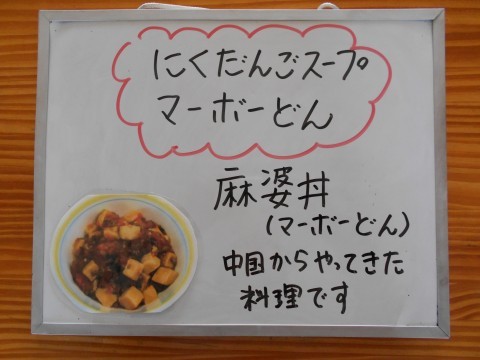 にくだんごスープ
マーボーどん
麻婆丼
(マーボーどん)
中国からやってきた
料理です